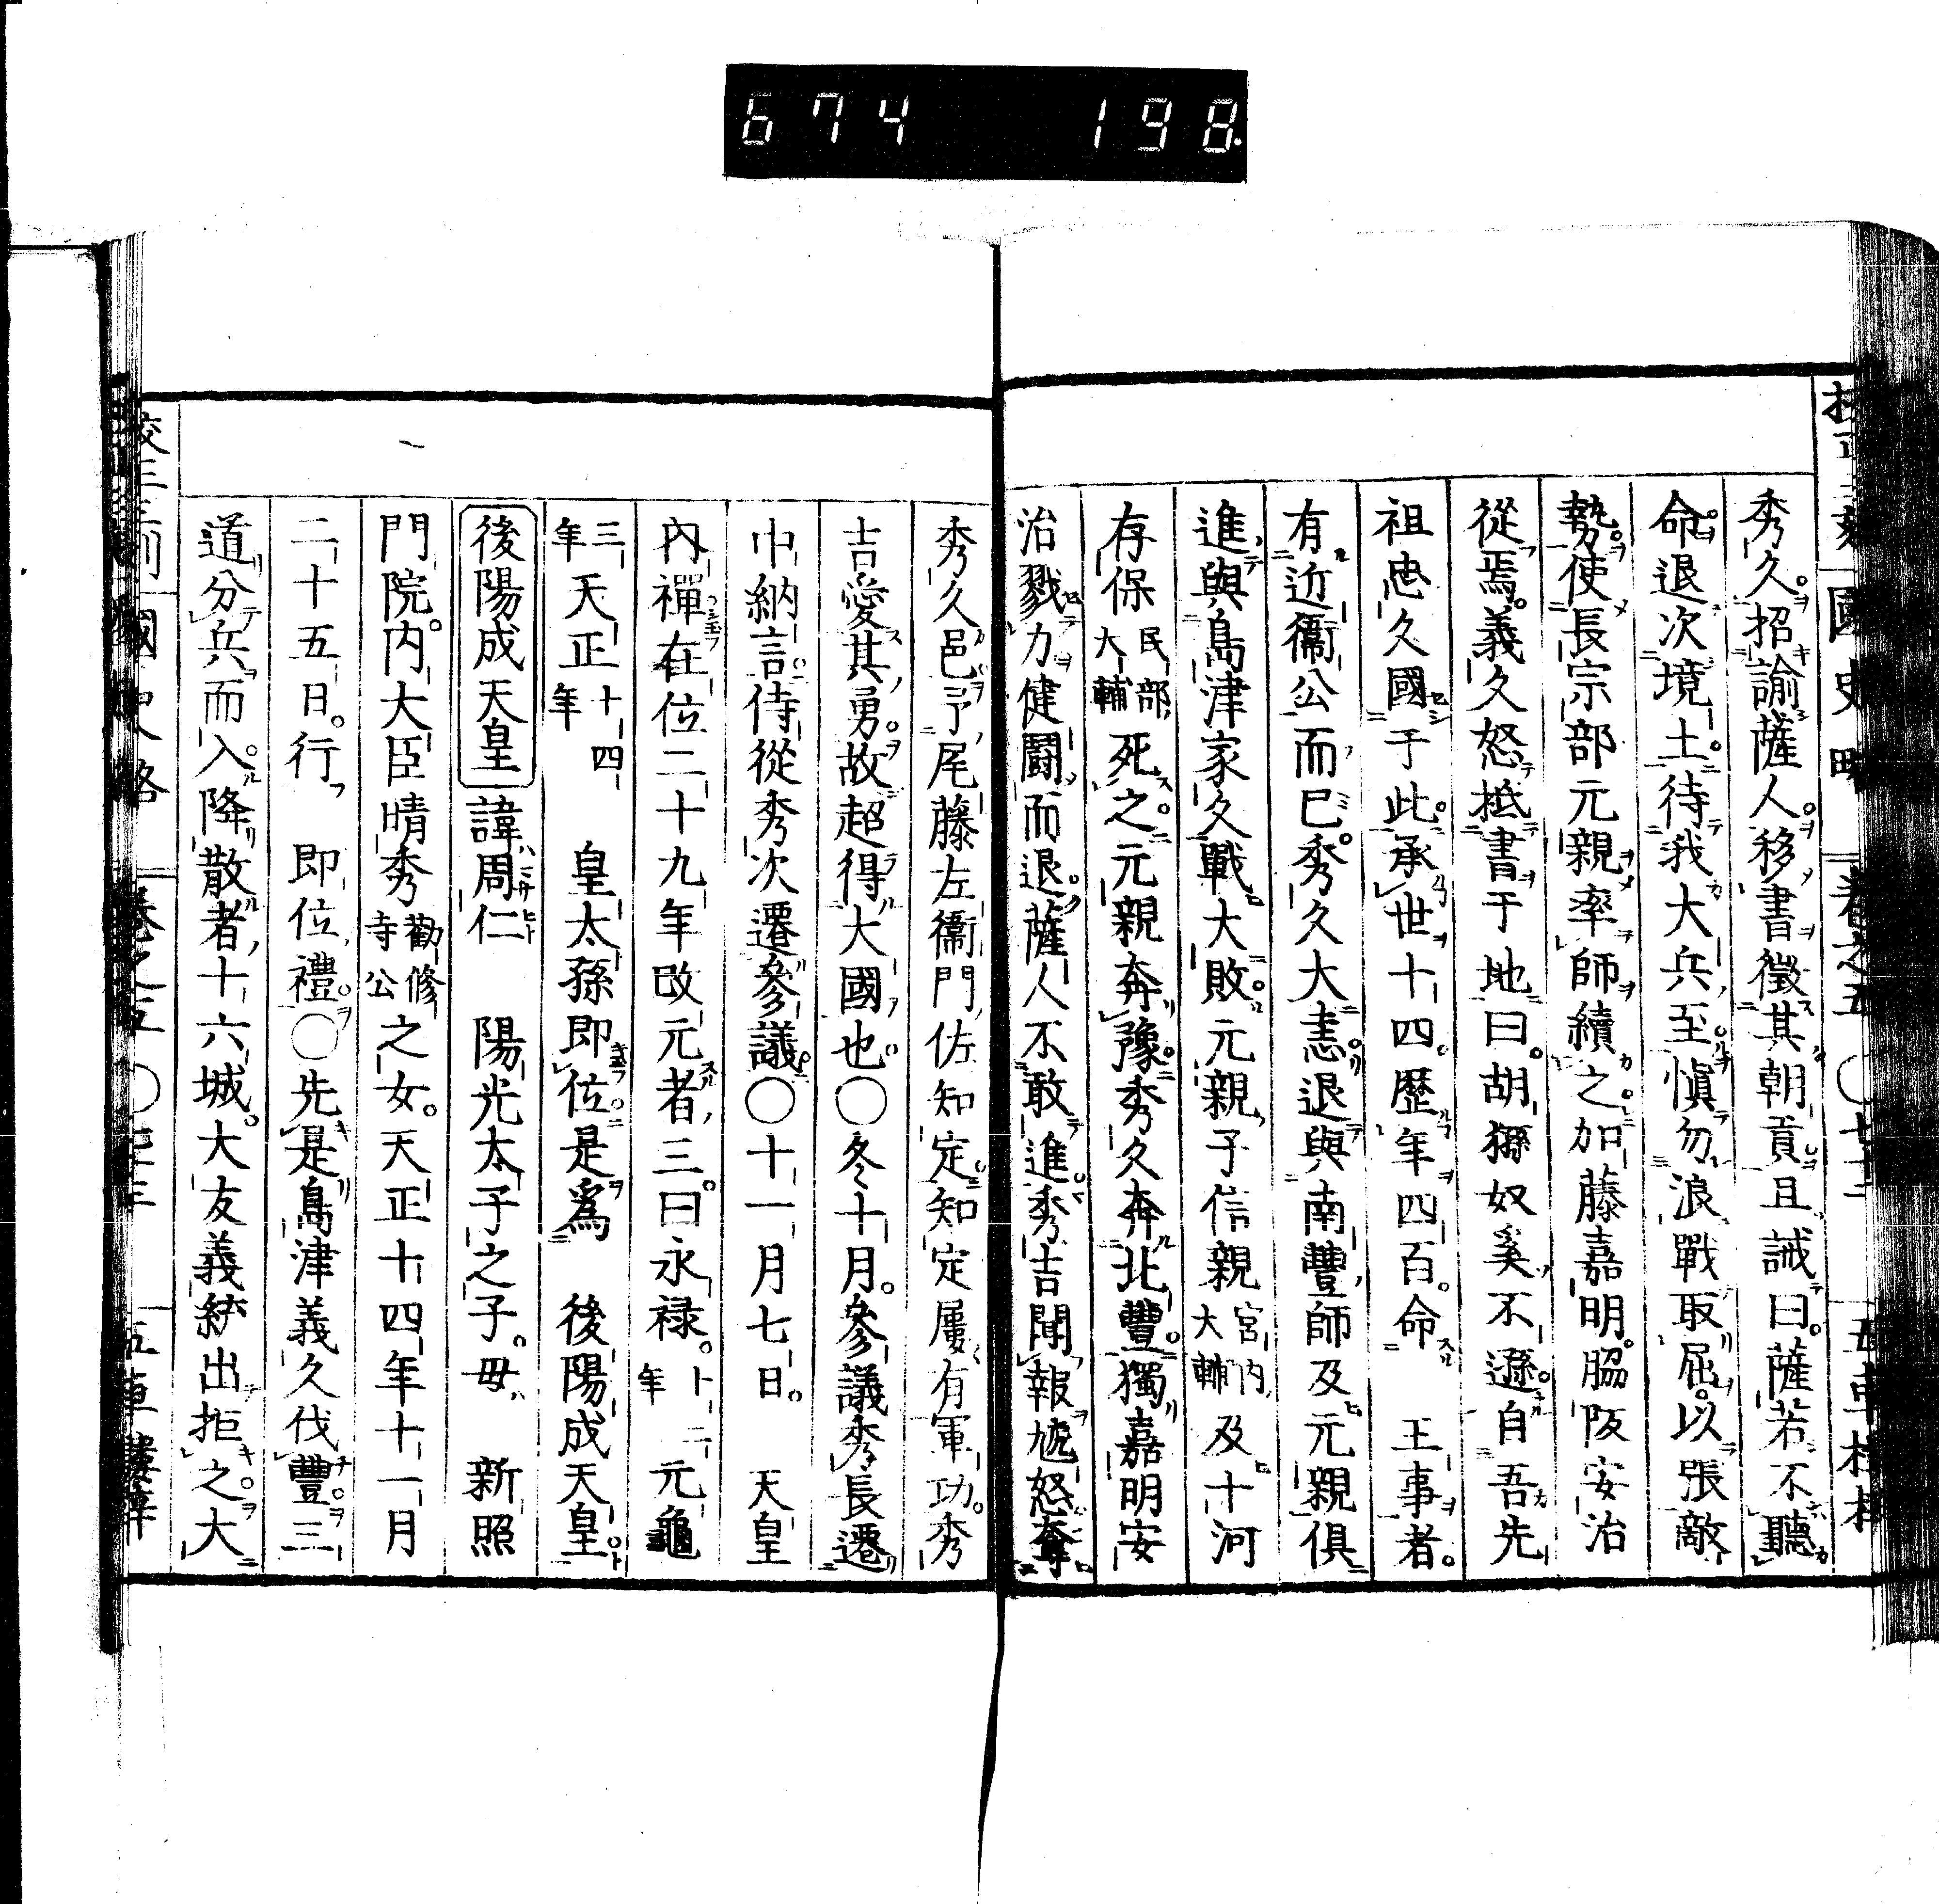 674 198
國史略 卷之五 ○七十二
秀久招諭薩人移書徵其朝貢且誡曰薩若不聽
命退次境土待我大兵至愼勿浪戰取屈以張敵
勢使長宗部元親率師續之加藤嘉明脇阪安治
從焉義久怒抵書于地曰胡猻奴奚不遜自吾先
祖忠久國于此承世十四歷年四百命 王事者
有近衞公而已秀久大恚退與南豐師及元親俱
進與島津家久戰大敗元親子信親宮内大輔及十河
存保民部大輔死之元親奔豫秀久奔北豐獨嘉明安
治戮力健鬪而退薩人不敢進秀吉聞報怒奪
秀久邑予尾藤左衞門佐知定知定屢有軍功秀
吉愛其勇故超得大國也○冬十月參議秀長遷
中納言侍從秀次遷參議○十一月七日 天皇
內禪在位二十九年改元者三曰永禄十二年元龜
三年天正十四年 皇太孫即位是爲 後陽成天皇
後陽成天皇 諱周仁 陽光太子之子母 新照
門院内大臣晴秀勸修寺公之女天正十四年十一月
二十五日行 即位禮○先是島津義久伐豐三
道分兵而入降散者十六城大友義統出拒之大
國史略 卷之五